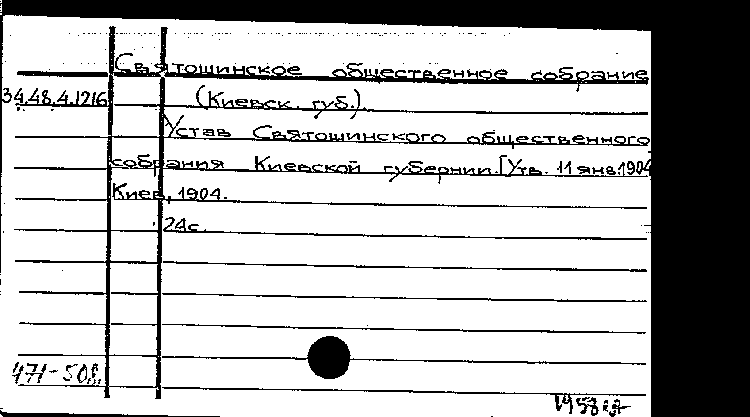 Святошинское общественное собрание
34.48.4.1216 (Киевск. губ.).
Устав Святошинского общественного
собрания Киевской губернии. [Утв. 11 янв. 1904
Киев, 1904.
24с.
471-50